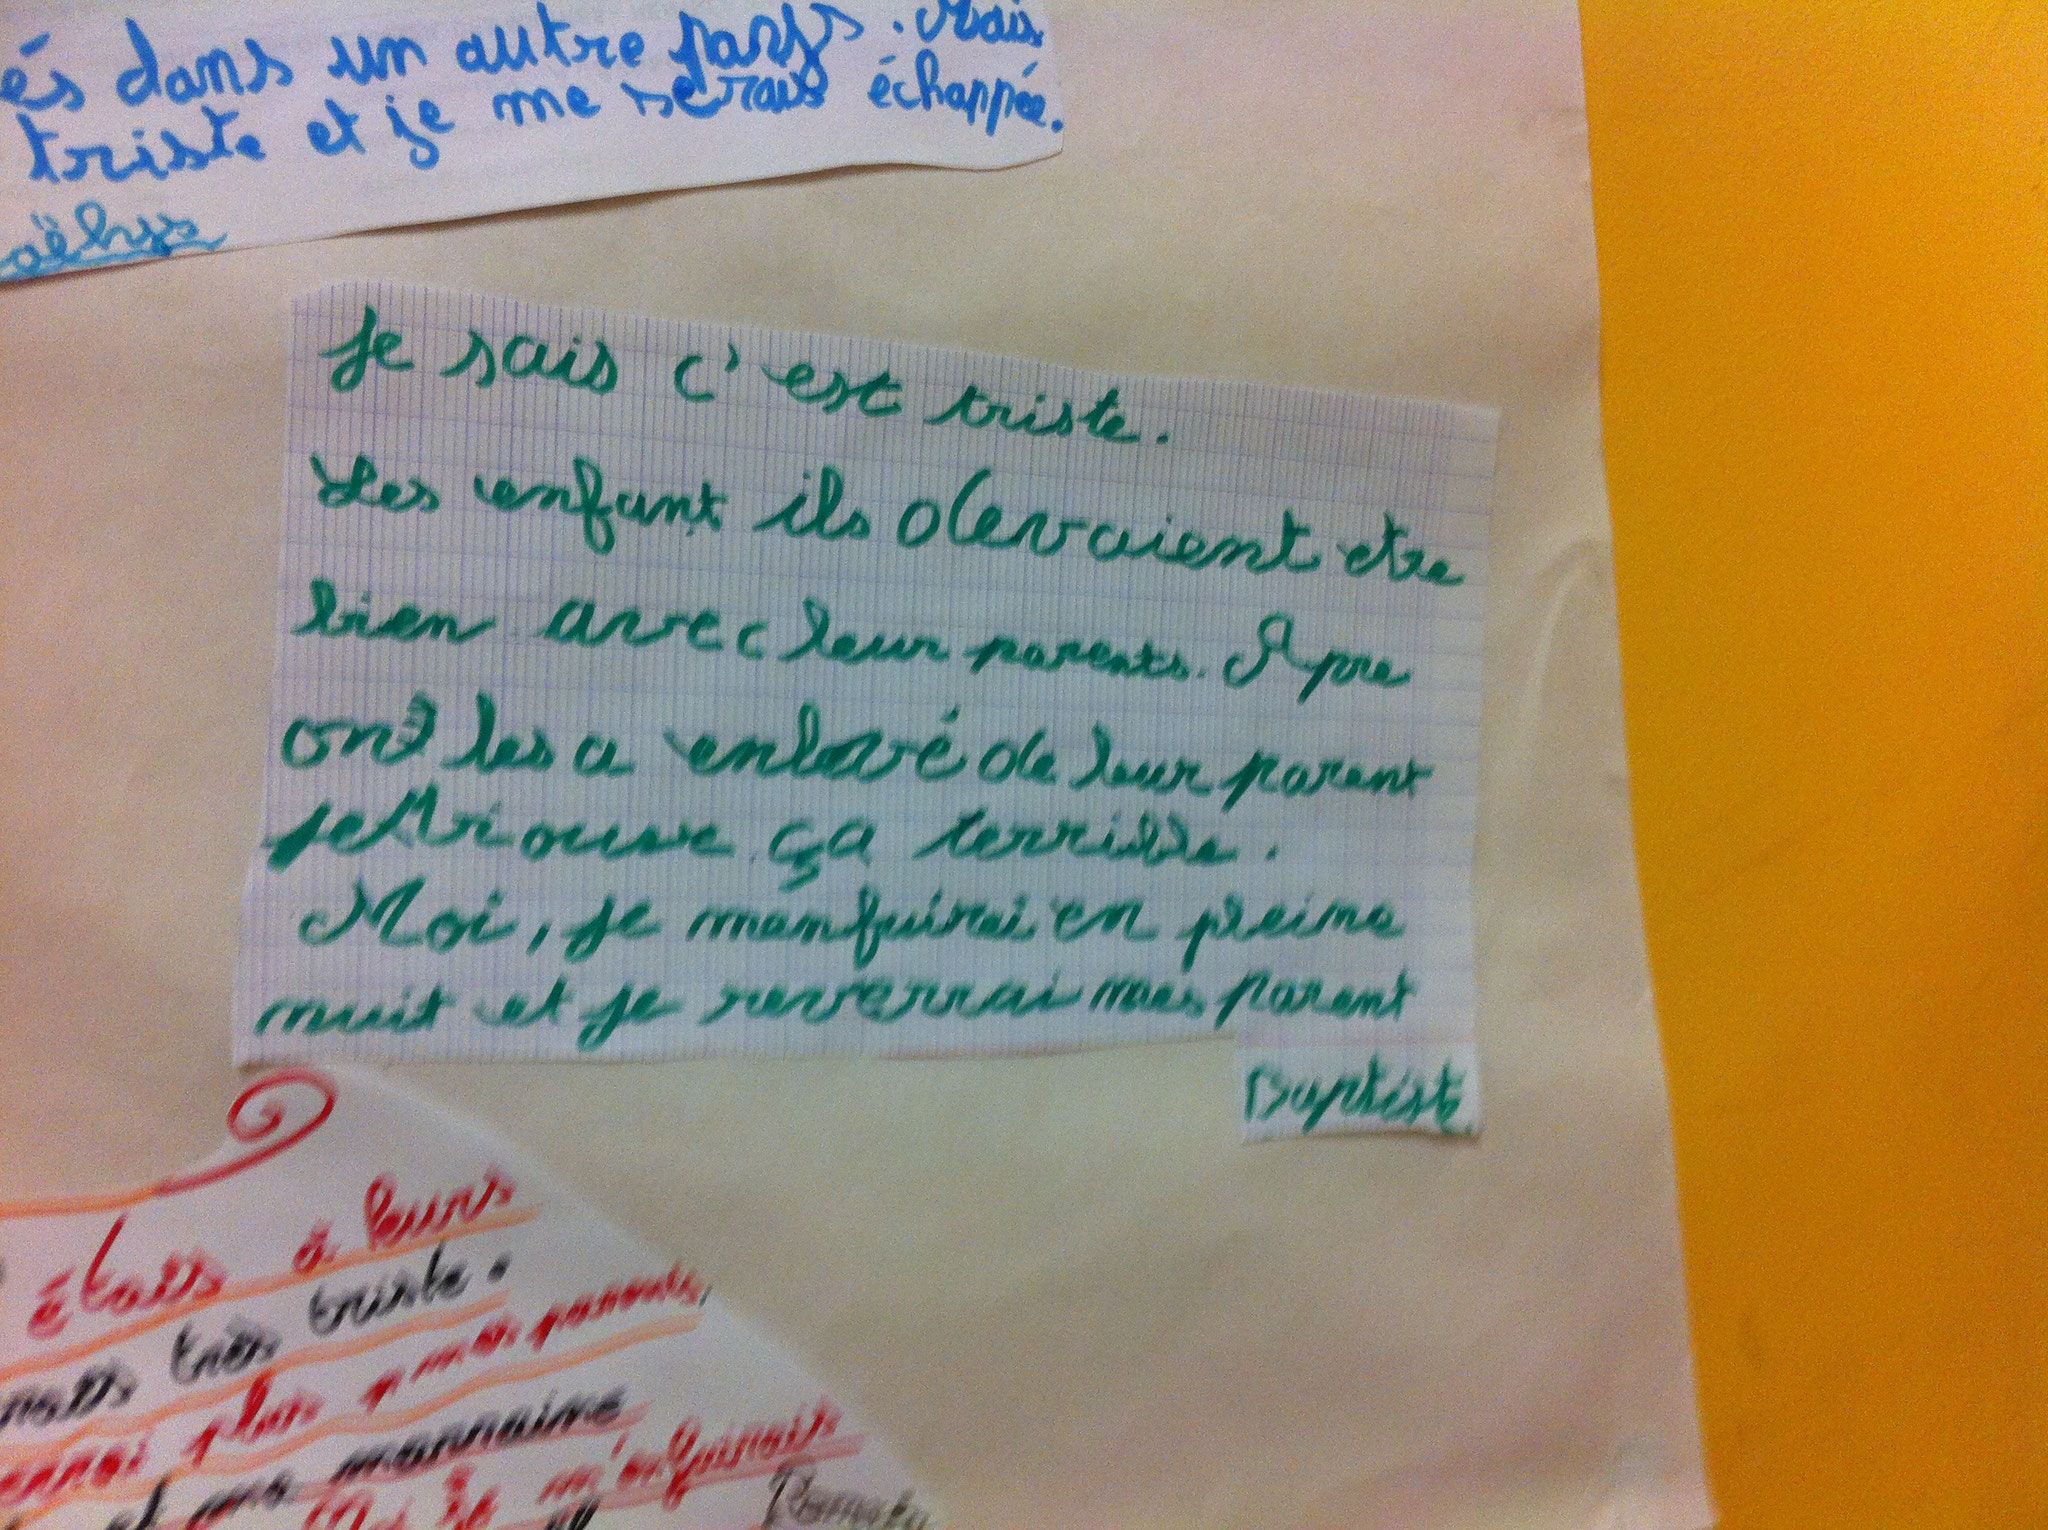 és dans un autre pays. Mais
triste et je me serais échappée.
aëlys
Je sais c'est triste.
Les enfant ils devaient etre
bien avec leur parents. Apre
on les a enlevé de leur parent
je trouve ça terrible.
Moi, je menfuirai en pleine
nuit et je reverrai mes parent
Baptiste.
étais à leurs
très triste.
mes parents,
et ma marraine
m'enfuirais